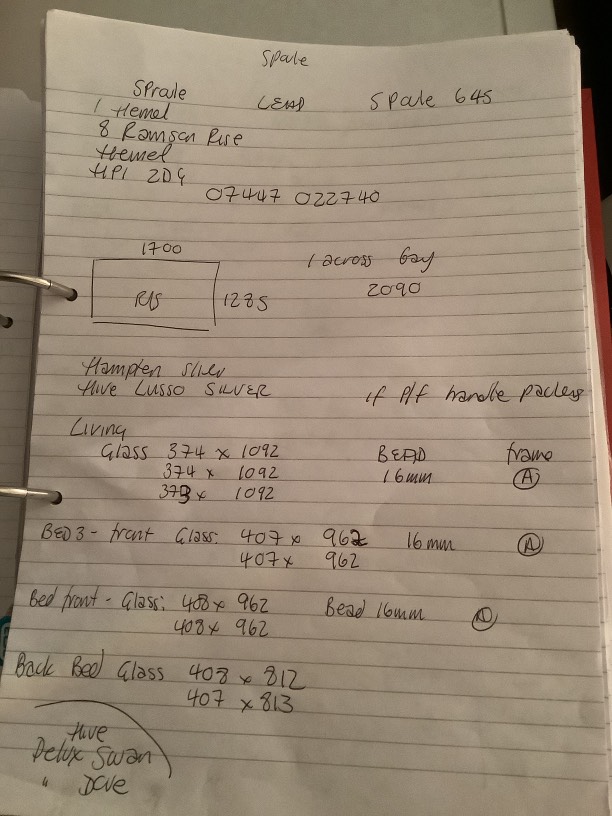 Spale
Sprale LEAD Spale 645
1 Hemel
8 Ramson Rise
Hemel
HP1 2DG
07447 022740
1700
R/S 1285
1 across bay
2090
Hampton Silver
Hive Lusso SILVER if P/f handle packers
Living
Glass 374 x 1092 BEAD frame
374 x 1092 16mm A
373 x 1092
BED 3 - front Glass: 407 x 962 16mm A
407 x 962
Bed front - Glass: 408 x 962 Bead 16mm
408 x 962
Back Bed Glass 408 x 812
407 x 813
Hive
Delux Swan
" Dove